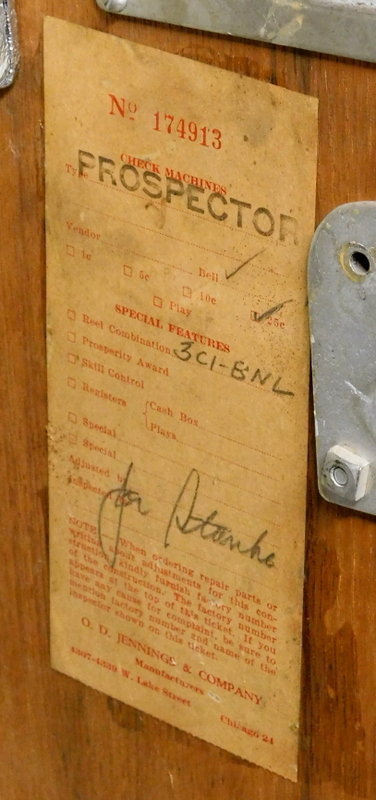 Nº 174913
CHECK MACHINES
Type PROSPECTOR
Vendor Bell ✓
☐ 1c ☐ 5c ☐ 10c ☑ 25c
☐ Play
SPECIAL FEATURES
☐ Reel Combination 3CI-BNL
☐ Prosperity Award
☐ Skill Control
☐ Registers { Cash Box
Plays
☐ Special
☐ Special
Adjusted by
Inspected
NOTE: When ordering repair parts or
writing about adjustments for this con-
struction, kindly furnish factory number
of the construction. The factory number
appears at the top of this ticket. If you
have any cause for complaint, be sure to
mention factory number and name of the
inspector shown on this ticket.
O. D. JENNINGS & COMPANY
Manufacturers
4307-4339 W. Lake Street Chicago 24